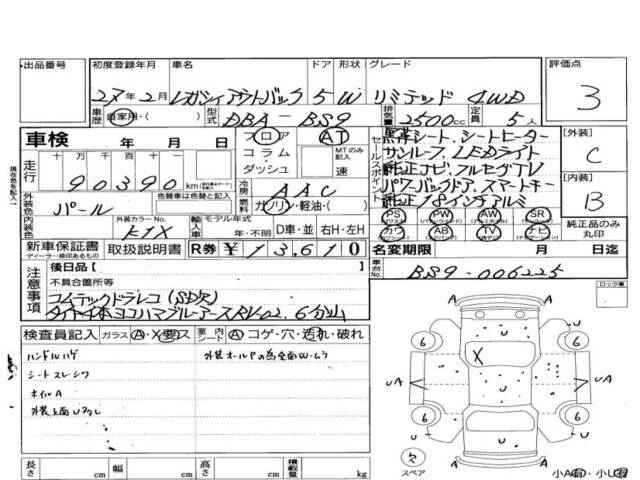 出品番号 初度登録年月 車名 ドア 形状 グレード 評価点
27年2月 レガシィアウトバック 5 W リミテッド 4WD 3
車歴 自家用・( ) 型式 DBA-BS9 排気量 2500cc 定員 5人
車検 年 月 日 フロア AT 黒革シート、シートヒーター [外装]
コラム・ MTのみ記入 サンルーフ、LEDライト C
走行 十万 万 千 百 十 ダッシュ 速 セールスポイント 純正ナビ、フルセグTV [内装]
90390 km 冷房 AAC パワーバックドア、スマートキー B
外装色 パール 色替車は色替と記入 燃料 ガソリン・軽油・( ) 純正18インチアルミ
PS PW AW SR 純正品のみ丸印
内装色 外装カラーNo. K1X 輸入車 モデル年式 年・不明 D車・並 右H・左H カワ AB TV ナビ
新車保証書 取扱説明書 R券 ¥13,610 名変期限 月 日迄
ディーラー継印あるもの
注意事項 後日品[ ] 車台No. BS9-006225
不具合箇所等 ロック車
コムテックドラレコ(SD欠)
タイヤ4本ヨコハマブルーアースRV-02、6分山
検査員記入 ガラス A・X・要ス 室内シート A コゲ・穴・汚れ・破れ
ハンドルハゲ 外装オールPの為全面W・ムラ
シートスレ・シワ
ホイルA
外装上面Uろし
6 6 X UA UA 6 6
スペア
長さ cm 幅 cm 高さ cm 積載量 kg 小A有・小U有